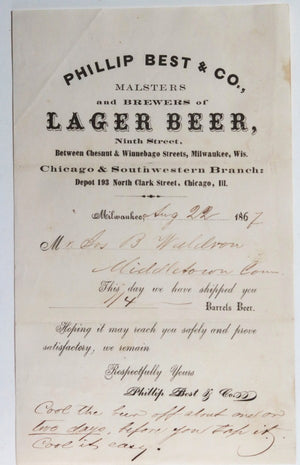 PHILLIP BEST & CO.,
MALSTERS
and BREWERS of
LAGER BEER,
Ninth Street,
Between Chesnut & Winnebago Streets, Milwaukee, Wis.
Chicago & Southwestern Branch:
Depot 193 North Clark Street, Chicago, Ill.
Milwaukee, Aug 22 1867
M Jos B Waldron
Middletown Conn
This day we have shipped you
1/4 Barrels Beer.
Hoping it may reach you safely and prove
satisfactory, we remain
Respectfully Yours
Phillip Best & Co.
Cool the beer off about one or
two days, before you tap it
Cool it easy.